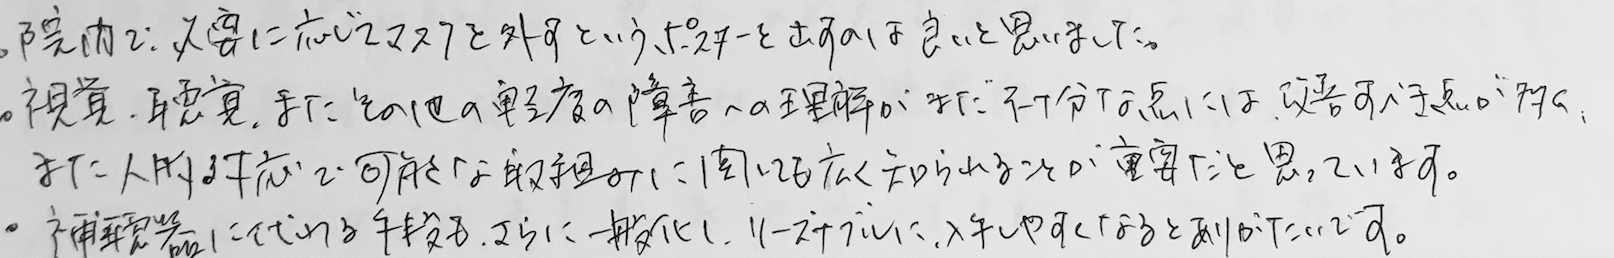 。院内で、必要に応じてマスクを外すという、ポスターを出すのは良いと思いました。
。視覚、聴覚、またその他の軽度の障害への理解がまだ不十分な点には、改善すべき点が多く、
また人的対応で可能な取組みに関しても広く知られることが重要だと思っています。
・補聴器に代わる手段も、さらに一般化し、リーズナブルに、入手しやすくなるとありがたいです。